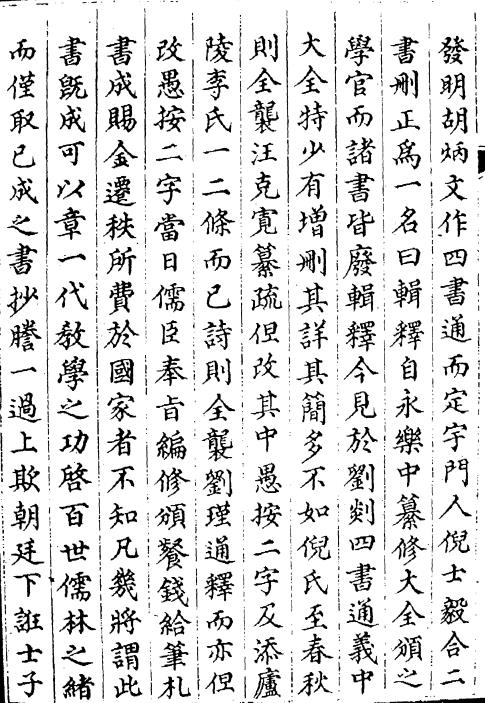 發明胡炳文作四書通而定宇門人倪士毅合二
書刪正爲一名曰輯釋自永樂中纂修大全頒之
學官而諸書皆廢輯釋今見於劉剡四書通義中
大全特少有增刪其詳其簡多不如倪氏至春秋
則全襲汪克寬纂疏但改其中愚按二字及添廬
陵李氏一二條而已詩則全襲劉瑾通釋而亦但
改愚按二字當日儒臣奉旨編修頒餐錢給筆札
書成賜金遷秩所費於國家者不知凡幾將謂此
書旣成可以章一代敎學之功啓百世儒林之緒
而僅取已成之書抄謄一過上欺朝廷下誑士子